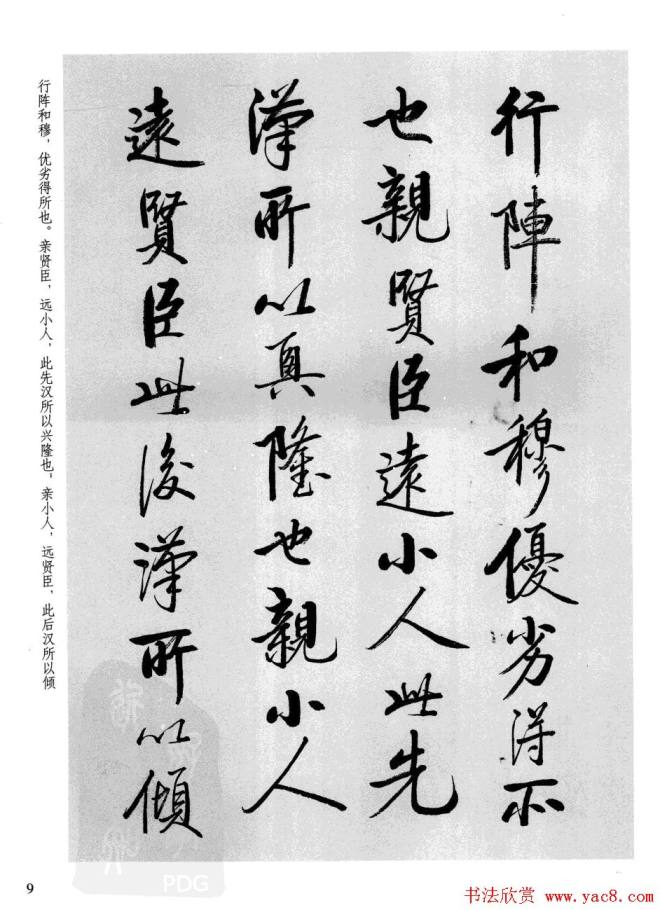 行陣和穆優劣得所
也親賢臣遠小人此先
漢所以興隆也親小人
遠賢臣此後漢所以傾
行阵和穆，优劣得所也。亲贤臣，远小人，此先汉所以兴隆也，亲小人，远贤臣，此后汉所以倾
9
PDG
书法欣赏 www.yac8.com